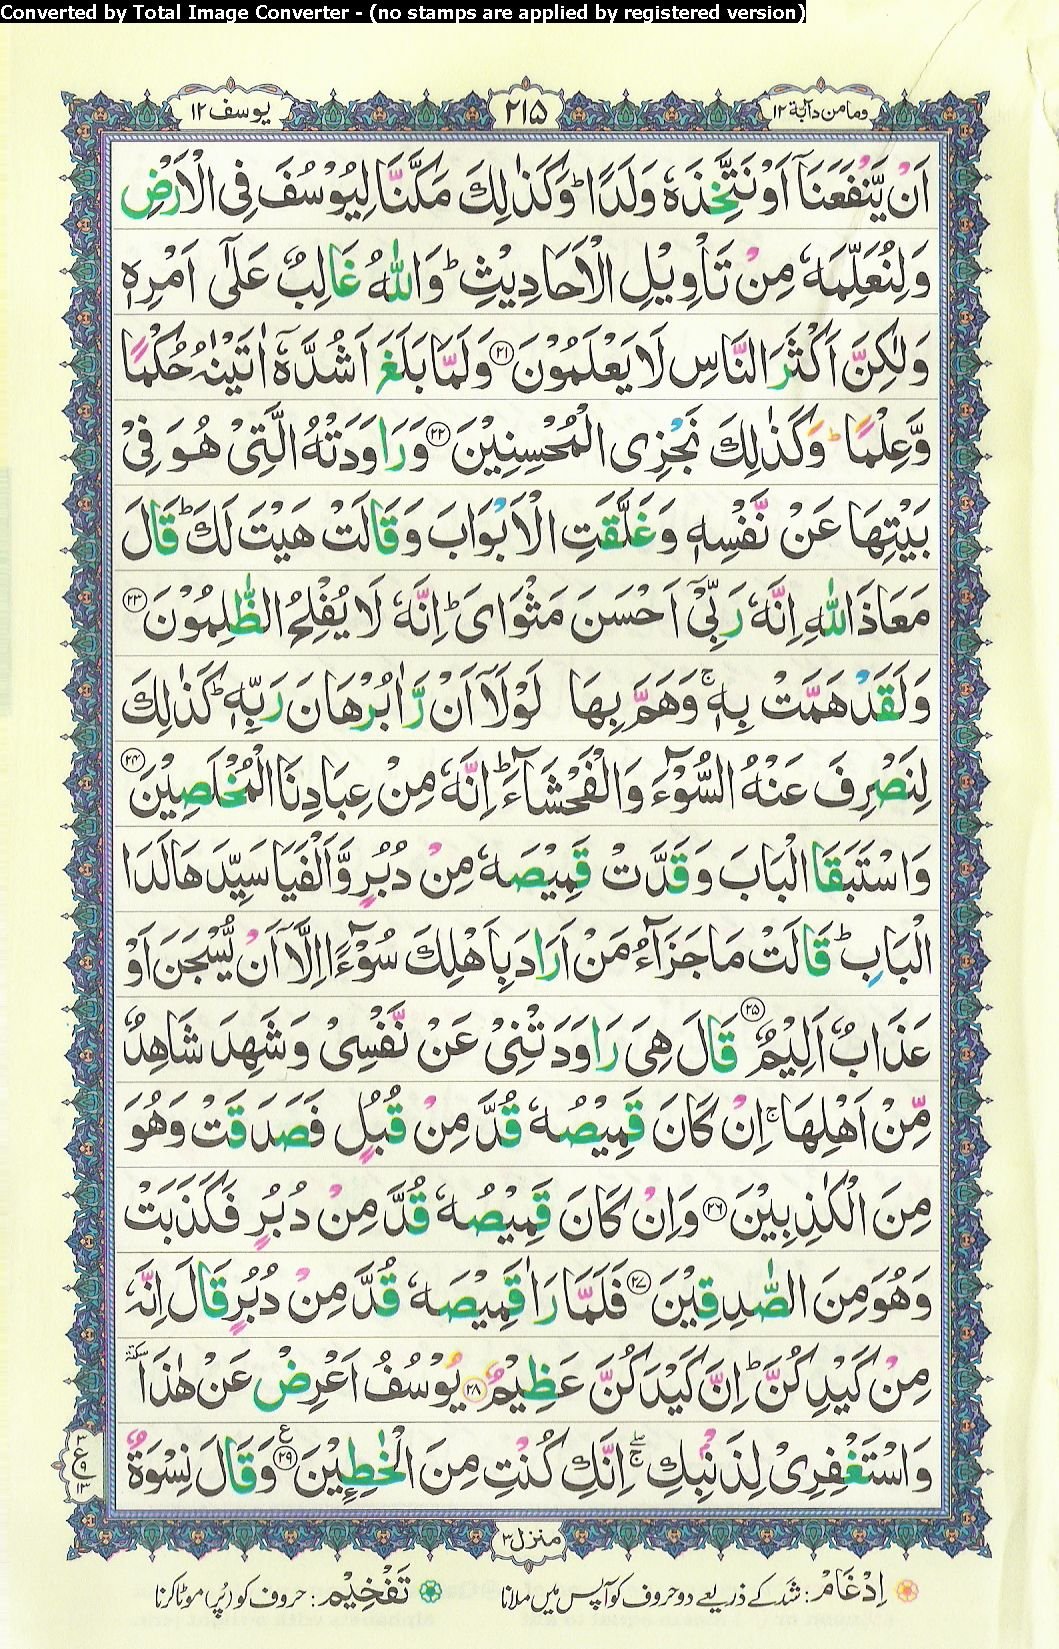 Converted by Total Image Converter - (no stamps are applied by registered version)
وما من دآبة ١٢
٢١٥
یوسف ١٢
اَنْ یَّنْفَعَنَاۤ اَوْ نَتَّخِذَهٗ وَلَدًا ؕ وَكَذٰلِكَ مَكَّنَّا لِیُوْسُفَ فِی الْاَرْضِ
وَلِنُعَلِّمَهٗ مِنْ تَاْوِیْلِ الْاَحَادِیْثِ ؕ وَاللّٰهُ غَالِبٌ عَلٰۤی اَمْرِهٖ
وَلٰكِنَّ اَكْثَرَ النَّاسِ لَا یَعْلَمُوْنَ ﴿٢١﴾ وَلَمَّا بَلَغَ اَشُدَّهٗۤ اٰتَیْنٰهُ حُكْمًا
وَّعِلْمًا ؕ وَكَذٰلِكَ نَجْزِی الْمُحْسِنِیْنَ ﴿٢٢﴾ وَرَاوَدَتْهُ الَّتِیْ هُوَ فِیْ
بَیْتِهَا عَنْ نَّفْسِهٖ وَغَلَّقَتِ الْاَبْوَابَ وَقَالَتْ هَیْتَ لَكَ ؕ قَالَ
مَعَاذَ اللّٰهِ اِنَّهٗ رَبِّیْۤ اَحْسَنَ مَثْوَایَ ؕ اِنَّهٗ لَا یُفْلِحُ الظّٰلِمُوْنَ ﴿٢٣﴾
وَلَقَدْ هَمَّتْ بِهٖ ۚ وَهَمَّ بِهَا لَوْلَاۤ اَنْ رَّاٰ بُرْهَانَ رَبِّهٖ ؕ كَذٰلِكَ
لِنَصْرِفَ عَنْهُ السُّوْٓءَ وَالْفَحْشَآءَ ؕ اِنَّهٗ مِنْ عِبَادِنَا الْمُخْلَصِیْنَ ﴿٢٤﴾
وَاسْتَبَقَا الْبَابَ وَقَدَّتْ قَمِیْصَهٗ مِنْ دُبُرٍ وَّاَلْفَیَا سَیِّدَهَا لَدَا
الْبَابِ ؕ قَالَتْ مَا جَزَآءُ مَنْ اَرَادَ بِاَهْلِكَ سُوْٓءًا اِلَّاۤ اَنْ یُّسْجَنَ اَوْ
عَذَابٌ اَلِیْمٌ ﴿٢٥﴾ قَالَ هِیَ رَاوَدَتْنِیْ عَنْ نَّفْسِیْ وَشَهِدَ شَاهِدٌ
مِّنْ اَهْلِهَا ۚ اِنْ كَانَ قَمِیْصُهٗ قُدَّ مِنْ قُبُلٍ فَصَدَقَتْ وَهُوَ
مِنَ الْكٰذِبِیْنَ ﴿٢٦﴾ وَاِنْ كَانَ قَمِیْصُهٗ قُدَّ مِنْ دُبُرٍ فَكَذَبَتْ
وَهُوَ مِنَ الصّٰدِقِیْنَ ﴿٢٧﴾ فَلَمَّا رَاٰ قَمِیْصَهٗ قُدَّ مِنْ دُبُرٍ قَالَ اِنَّهٗ
مِنْ كَیْدِكُنَّ ؕ اِنَّ كَیْدَكُنَّ عَظِیْمٌ ﴿٢٨﴾ یُوْسُفُ اَعْرِضْ عَنْ هٰذَا ٚ سكتة
وَاسْتَغْفِرِیْ لِذَنْۢبِكِ ۖۚ اِنَّكِ كُنْتِ مِنَ الْخٰطِـِٕیْنَ ﴿٢٩﴾ ع وَقَالَ نِسْوَةٌ
٣
ع ٩
١٣
منزل ٣
اِدْغَام: شد کے ذریعے دو حروف کو آپس میں ملانا
تَفْخِیْم: حروف کو (پُر) موٹا کرنا